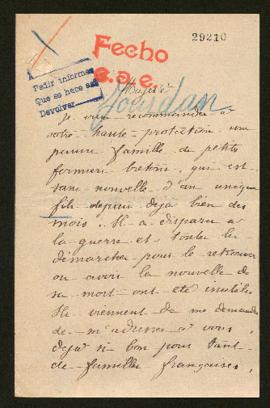 29210
Fecho
e.s.e.
Pedir informes
Que se hace así
Devolver
Jourdan
Majesté
Je viens recommander à
votre haute protection une
pauvre famille de petits
fermiers bretons, qui est
sans nouvelle d'un unique
fils depuis déjà bien des
mois. Il a disparu à
la guerre et toutes les
démarches pour le retrouver
ou avoir la nouvelle de
sa mort ont été inutiles.
Ils viennent de me demander
de m'adresser à vous
déjà si bon pour tant
de familles françaises,